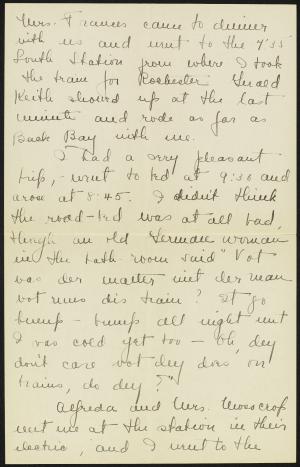 Mrs. Frances came to dinner
with us and went to the 7'35
South Station from where I took
the train for Rochester. Gerald
Keith showed up at the last
minute and rode as far as
Back Bay with me.
I had a very pleasant
trip, - went to bed at 9:30 and
arose at 8:45. I didn't think
the road-bed was at all bad,
though an old German woman
in the bath-room said "Vot
was der matter mit der man
vot runs dis train? It go
bump - bump all night unt
I was cold yet too - Oh, dey
don't care vot dey does on
trains, do dey?"
Alfreda and Mrs. Moscrop
met me at the station in their
electric, and I went to the